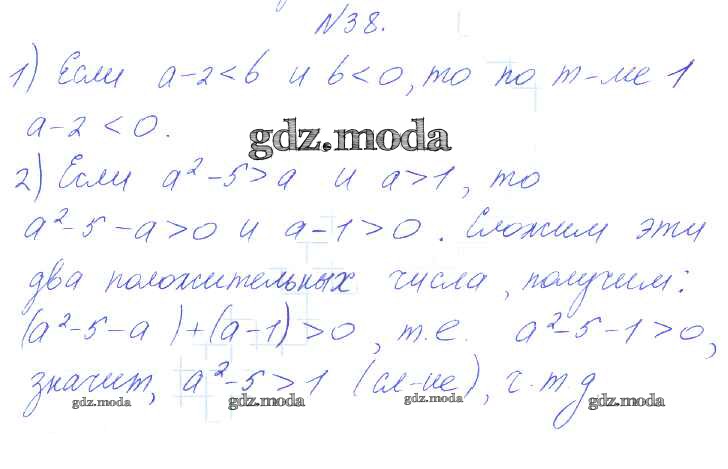 №38.
1) Если a-2<b и b<0, то по т-ме 1
a-2<0.
gdz.moda
2) Если a²-5>a и a>1, то
a²-5-a>0 и a-1>0. Сложим эти
два положительных числа, получим:
(a²-5-a)+(a-1)>0, т.е. a²-5-1>0,
значит, a²-5>1 (сл-ие), ч.т.д
gdz.moda gdz.moda gdz.moda gdz.moda